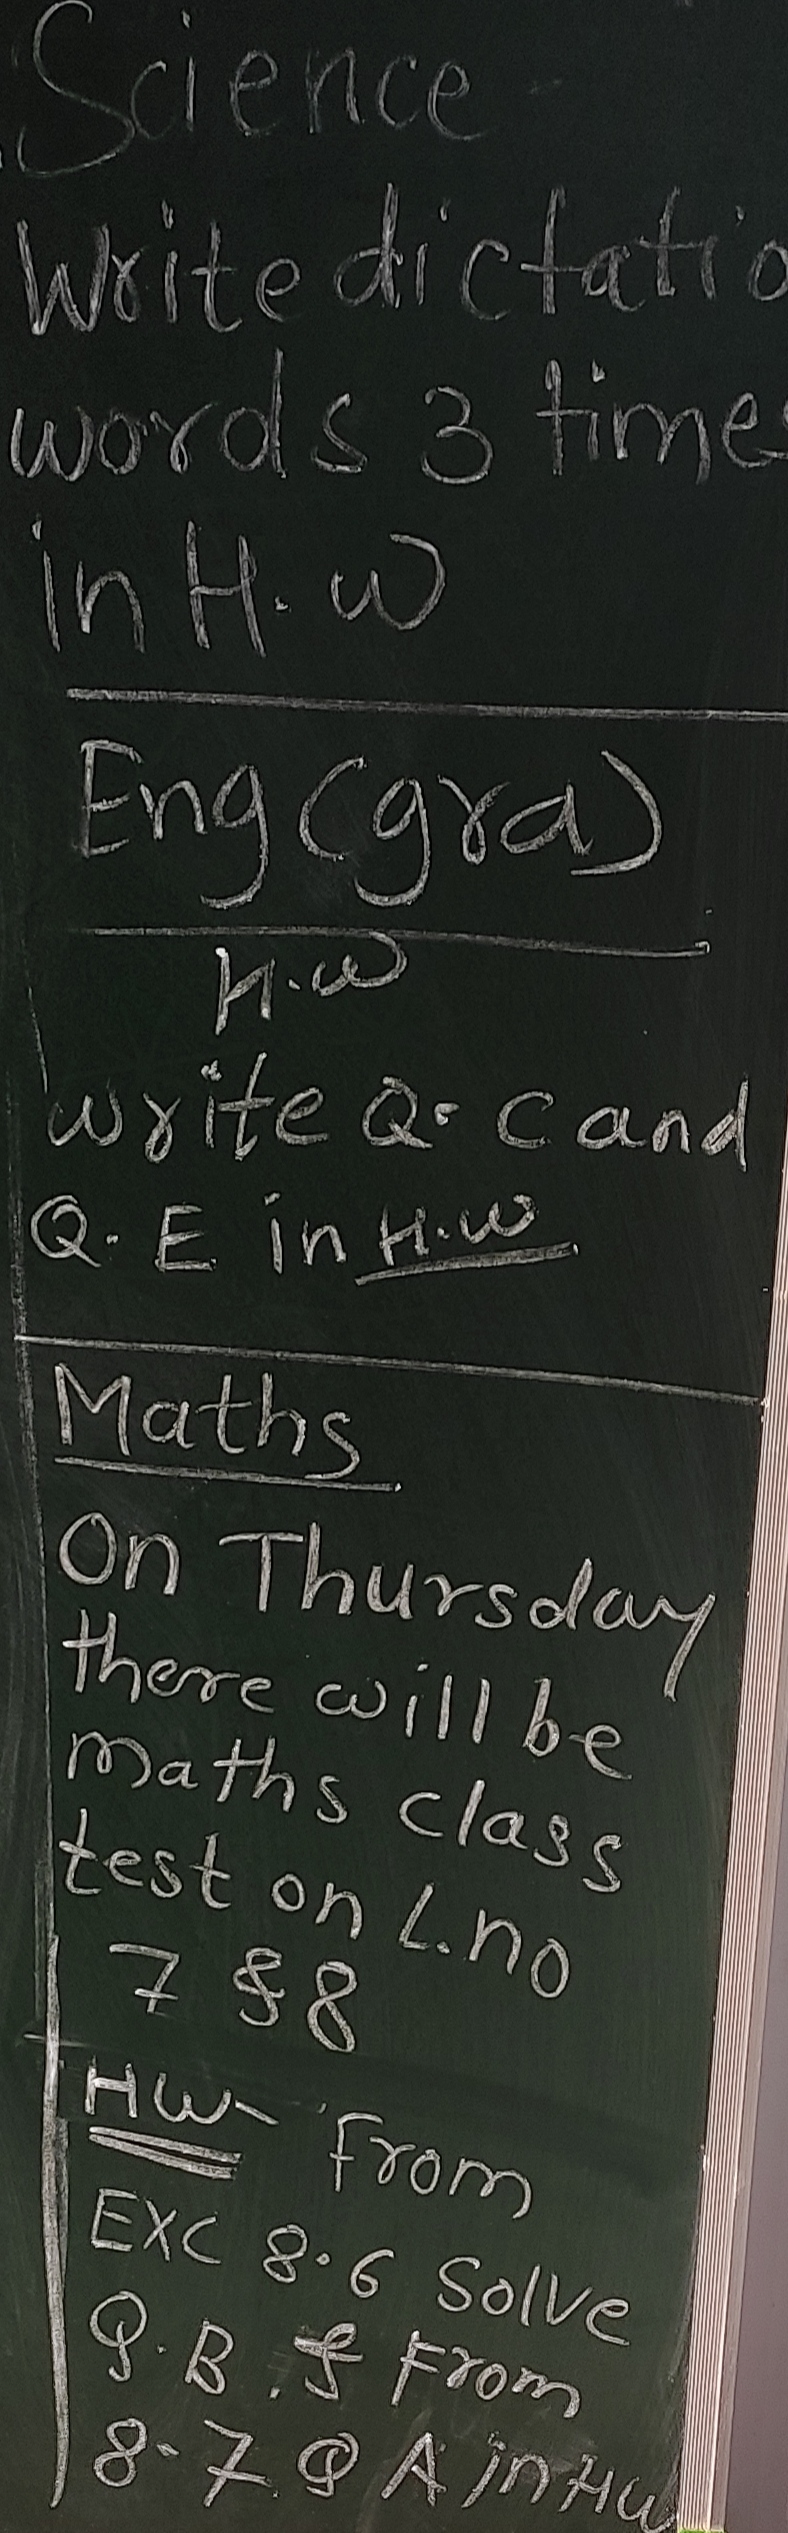 Science -
Write dictatio
words 3 times
in H.W
Eng (gra)
H.W
write Q. C and
Q. E in H.W
Maths
On Thursday
there will be
maths class
test on L.no
7 & 8
HW- From
EXC 8.6 Solve
Q.B. & From
8.7 Q A in HW